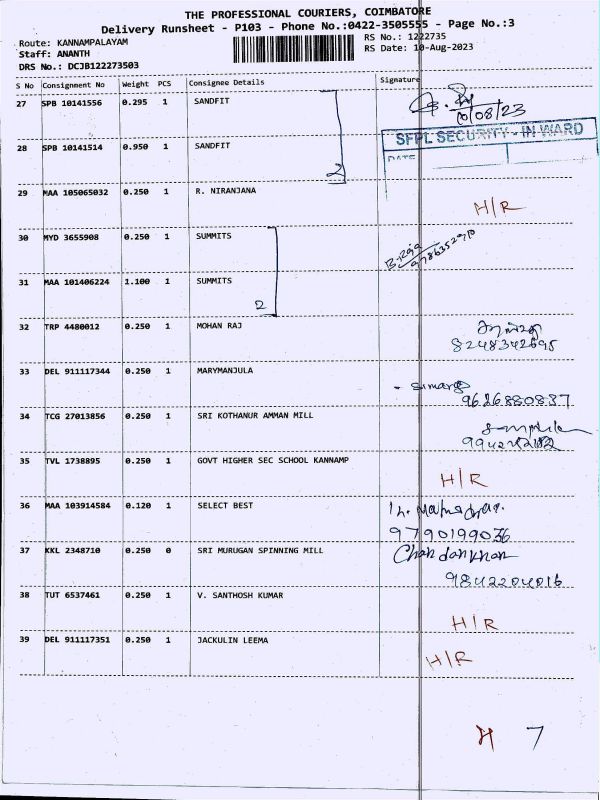 THE PROFESSIONAL COURIERS, COIMBATORE
Delivery Runsheet - P103 - Phone No.:0422-3505555 - Page No.:3
Route: KANNAMPALAYAM
RS No.: 1222735
Staff: ANANTH
RS Date: 10-Aug-2023
DRS No.: DCJB122273503
S No Consignment No Weight PCS Consignee Details Signature
27 SPB 10141556 0.295 1 SANDFIT
10/08/23
SFPL SECURITY - IN WARD
28 SPB 10141514 0.950 1 SANDFIT
DATE
2
29 MAA 105065032 0.250 1 R. NIRANJANA
H/R
30 MYD 3655908 0.250 1 SUMMITS
B. Raja
31 MAA 101406224 1.100 1 SUMMITS
2
32 TRP 4480012 0.250 1 MOHAN RAJ
8248342695
33 DEL 911117344 0.250 1 MARYMANJULA
9626880837
34 TCG 27013856 0.250 1 SRI KOTHANUR AMMAN MILL
35 TVL 1738895 0.250 1 GOVT HIGHER SEC SCHOOL KANNAMP
H/R
36 MAA 103914584 0.120 1 SELECT BEST
9790199036
37 KKL 2348710 0.250 0 SRI MURUGAN SPINNING MILL
9842204016
38 TUT 6537461 0.250 1 V. SANTHOSH KUMAR
H/R
39 DEL 911117351 0.250 1 JACKULIN LEEMA
H/R
H 7